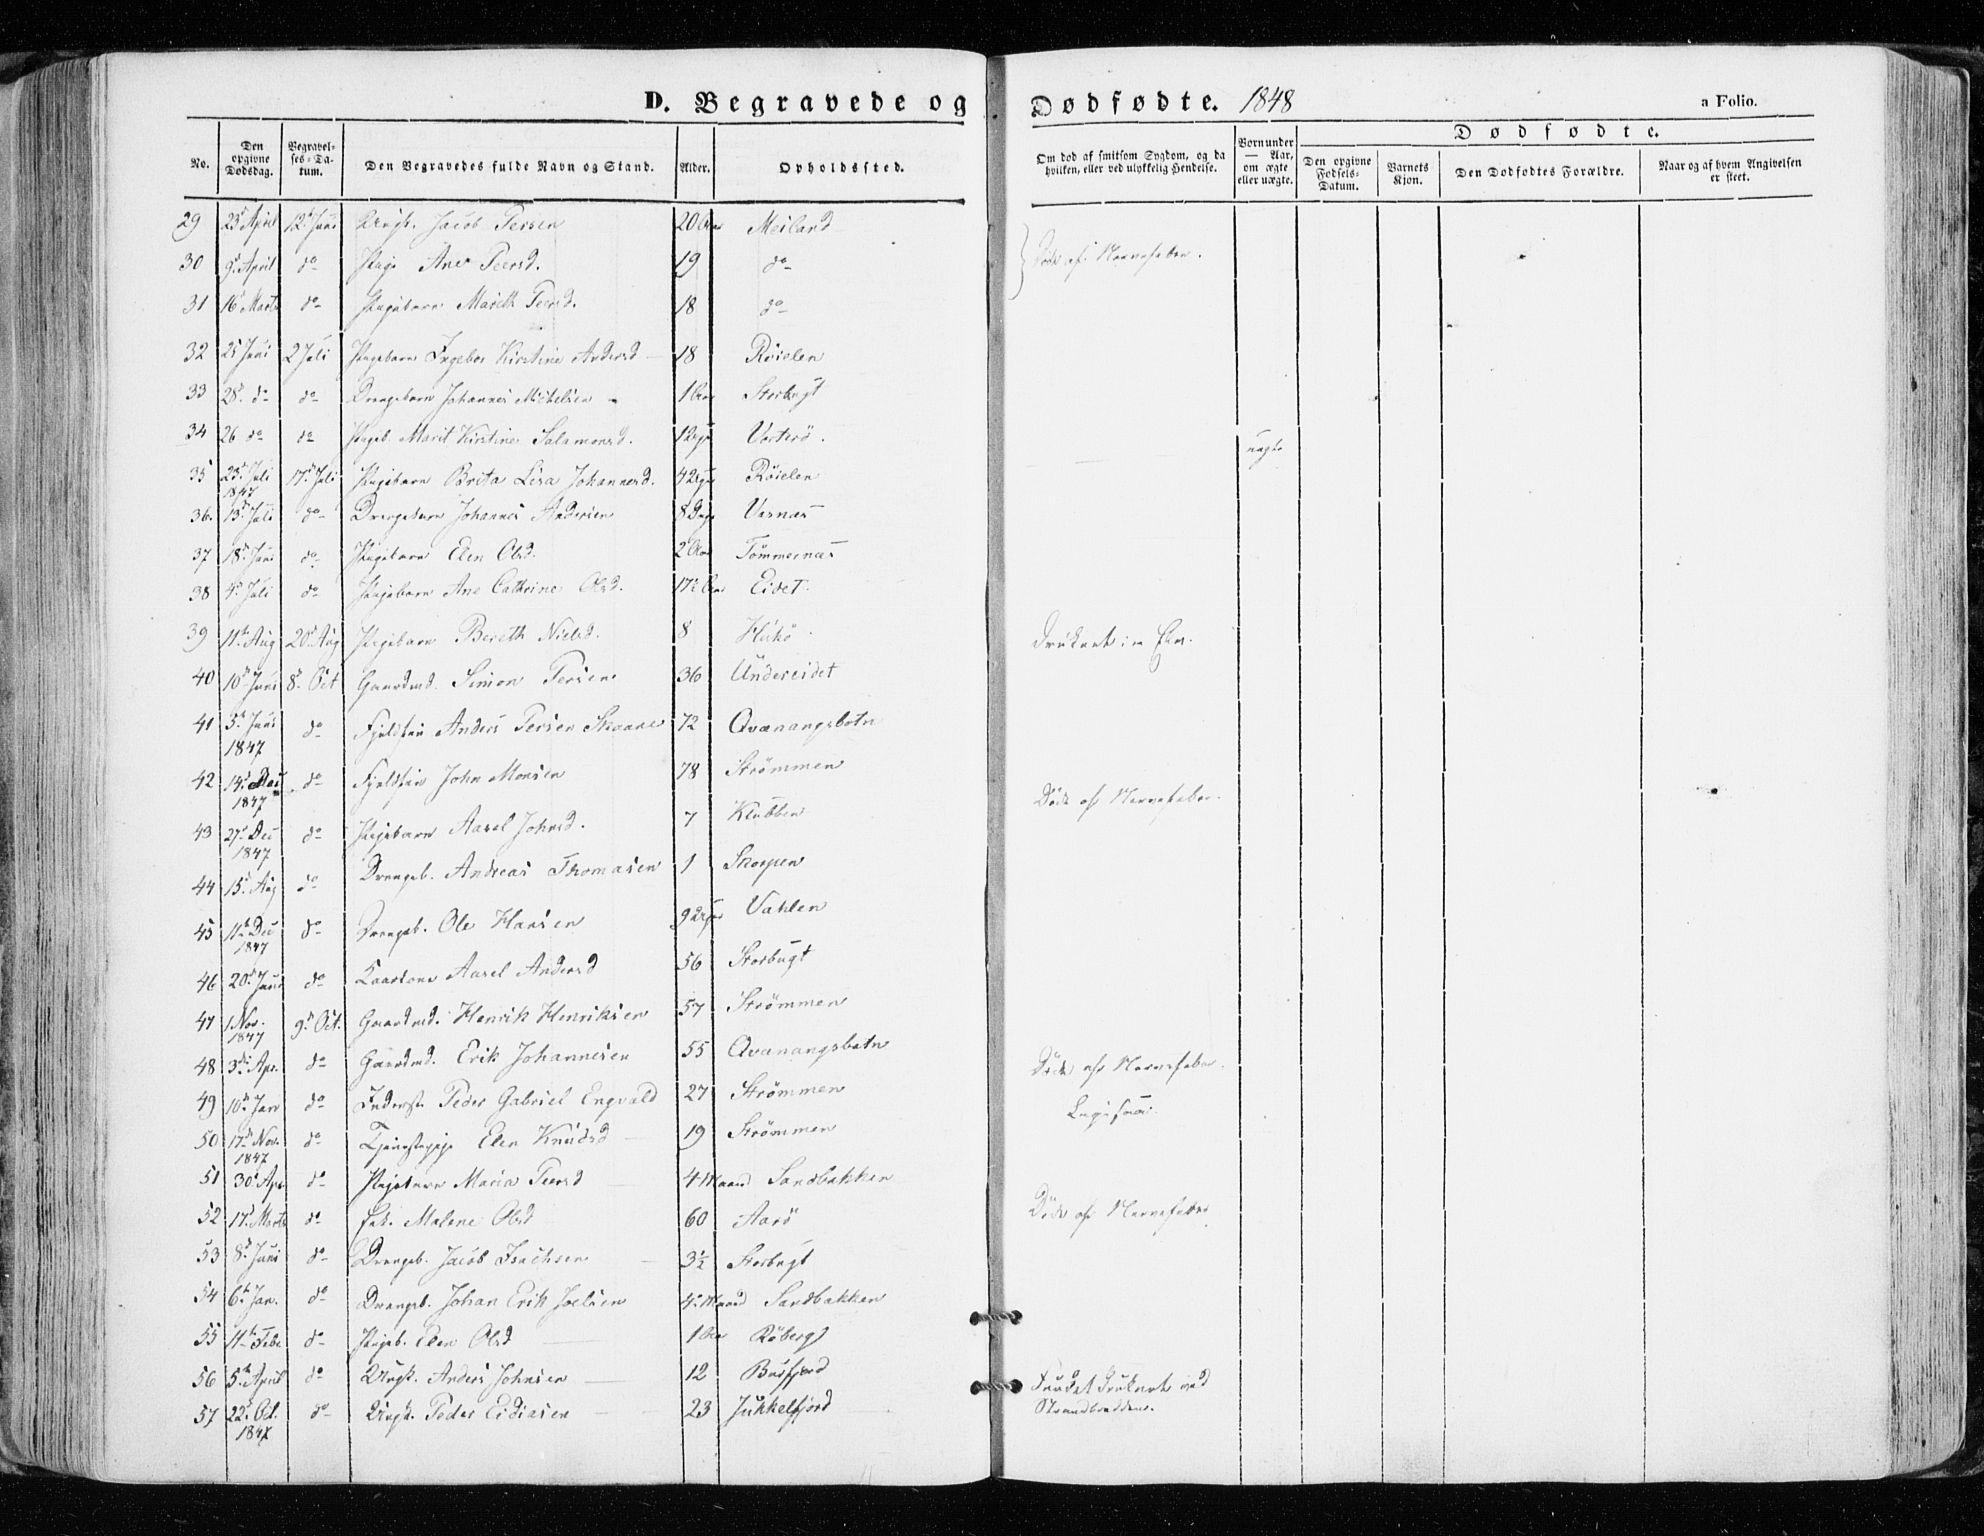 D. Begravede og Dødfødte. 1848
a Folio.
No.
Den opgivne Dødsdag.
Begravelses-Datum.
Den Begravedes fulde Navn og Stand.
Alder.
Opholdssted.
Om død af smitsom Sygdom, og da hvilken, eller ved ulykkelig Hendelse.
Børn under — Aar, om ægte eller uægte.
Dødfødte.
Den opgivne Fødsels-Datum.
Barnets Kjøn.
Den Dødfødtes Forældre.
Naar og af hvem Angivelsen er skeet.
29 23d April 12te Juni Ungk. Jacob Persen 20 Aar Meiland
30 9d April do Pige Ane Peersd. 19 do Døde af Nervefeber.
31 16 Marts do Pigebarn Marith Peersd. 18 do
32 25 Juni 2 Juli Pigebarn Ingebor Kirstine Andersd 18 Röielen
33 28d do do Drengebarn Johannes Michelsen 1 Aar Storbugt
34 26 do do Pigeb. Marit Kirstine Salamonsd. 12 Vorterö. uægte
35 23d Juli 1847 17d Juli Pigebarn Brita Lisa Johannesd. 4 Uger Röielen
36. 13d Juli do Drengebarn Johannes Andersen 8 Dage Varnæs
37 18d Juni do Pigebarn Elen Olsd. 2 Aar Tömmernæs
38 4d Juli do Pigebarn Ane Cathrine Olsd. 17½ Aar Eidet
39 11te Aug 20d Aug Pigebarn Bereth Nielsd. 8 Hukö druknet i en Elv.
40 10d Juni 8d Oct Gaardmd. Simon Persen 36 Undereidet
41 5te Juni 1847 do Fjeldfin Anders Persen Skaane 72 Qvænangsbotn
42 14d Dec 1847 do Fjeldfin John Monsen 78 Strömmen Döde af Nervefeber.
43 27d Dec 1847 do Pigebarn Aasel Johnsd. 7 Klubben
44 15d Aug do Drengeb. Andreas Thomasen 1 Skorpen
45 11te Dec 1847 do Drengeb. Ole Hansen 9 Uger Vahlen
46 20d Juni do Aasel Andersd 56 Storbugt
47 1 Nov. 1847 9d Oct. Gaardmd. Henrik Henriksen 57 Strömmen
48 3die Apr. do Gaardmd. Erik Johannesen 55 Qvænangsbotn Döde af Nervefeber.
49 10de Jan do Inderst Peder Gabriel Engvald 27 Strömmen
50 17d Nov. 1847 do Tjenestepige Elen Knudsd 19 Strömmen
51 30d Apr do Pigebarn Maria Peersd 4 Maaned Sandbakken
52 17d Marts do Malene Olsd 60 Aarö Döde af Nervefeber
53 8d Juni do Drengeb. Jacob Isachsen 3½ Storbugt
54 6te Jan. do Drengeb. Johan Erik Joelsen 4 Maaned Sandbakken
55 11te Febr do Pigeb. Elen Olsd 1 Aar Röberg
56 5te April do Ungk. Anders Johnsen 12 Burfjord Fundet druknet ved
57 22d Oct. 1847 do Ungk. Peder Eidiasen 23 Jukkelfjord Strandbredden.